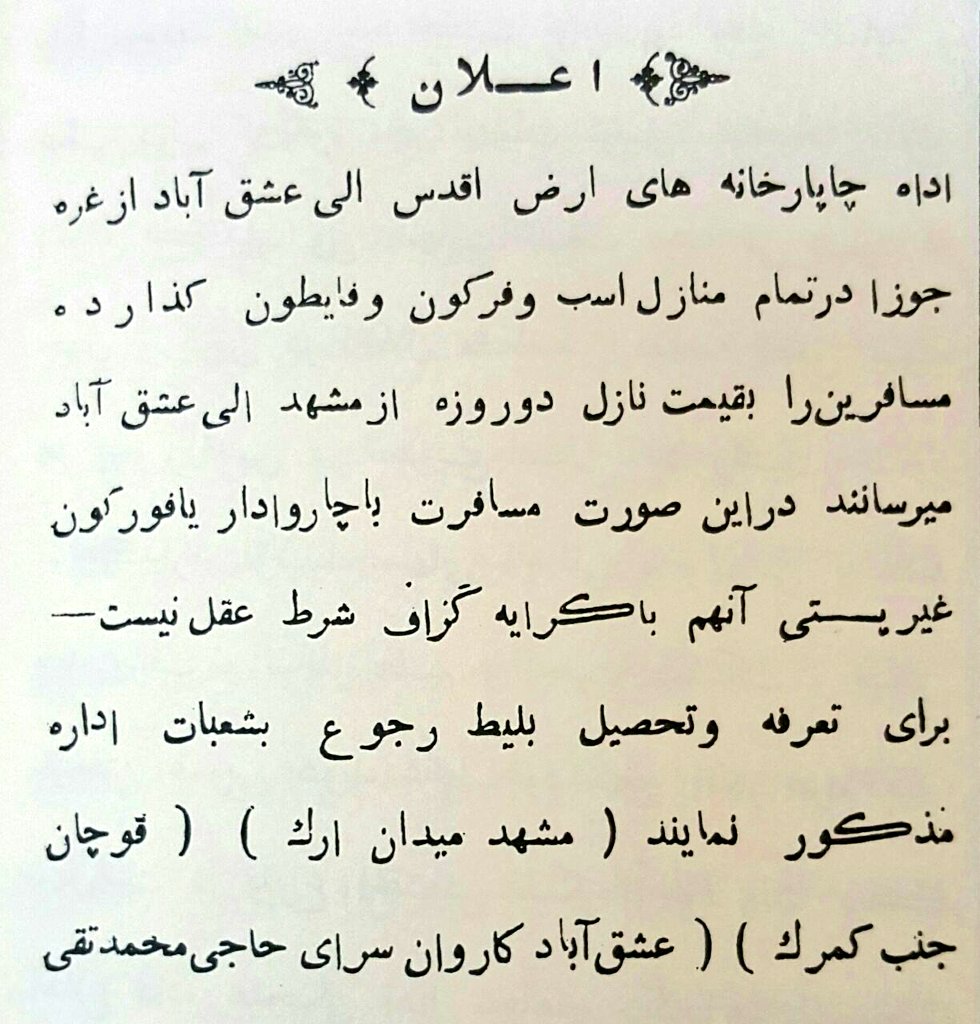 اعـــلان
اداه چاپارخانه های ارض اقدس الی عشق آباد از غره
جوزا درتمام منازل اسب وفرکون وفایطون کذارده
مسافرین‌را بقیمت نازل دوروزه ازمشهد الی عشق آباد
میرسانند دراین صورت مسافرت باچاروادار یافورکون
غیر پـــستی آنهم باکرایه گزاف شرط عقل نیست—
برای تعرفه وتحصیل بلیط رجوع بشعبات اداره
مذکور نمایند ( مشهد میدان ارك ) ( قوچان
جنب کمرك ) ( عشق‌آباد کاروان سرای حاجی محمدتقی